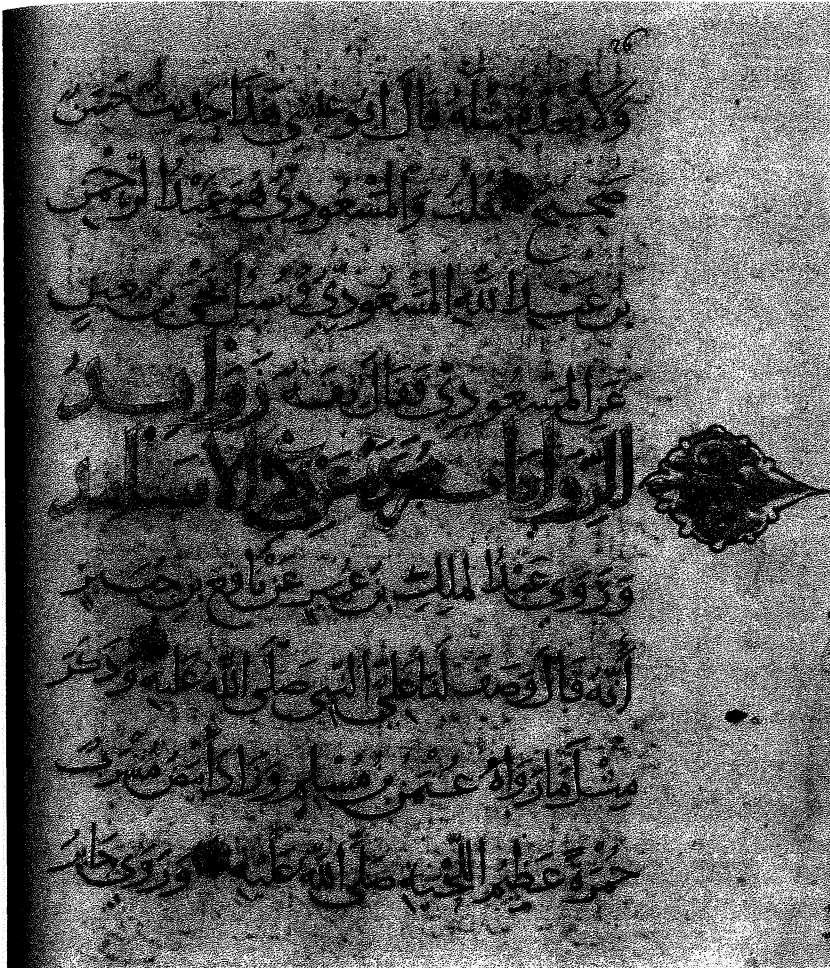 ولا بعد مثله قال أبو عيسى هذا حديث حسن
صحيح قلت والمسعودي هو عبد الرحمن
بن عبد الله المسعودي وسئل يحيى بن معين
عن المسعودي فقال ثقة زوائد
الروايات عن الأسانيد
وَرَوَى عَبْدُ الملِكِ بن عُمير عَنْ نَافِع بن جُبَير
أَنَّهُ قَالَ وَصَفَ لَنَا عَلِيٌّ النَّبِي صَلَّى اللهُ عَلَيْهِ وَذَكَرَ
مِثْلَ مَا رَوَاهُ عُثمن بن مُسْلِمٍ وَزَادَ أَبْيَضُ مُشْرَبٌ
حُمْرَةً عَظِيْمُ اللِّحْيَةِ صَلَّى اللهُ عَلَيْهِ وَرَوَى جَابِرُ